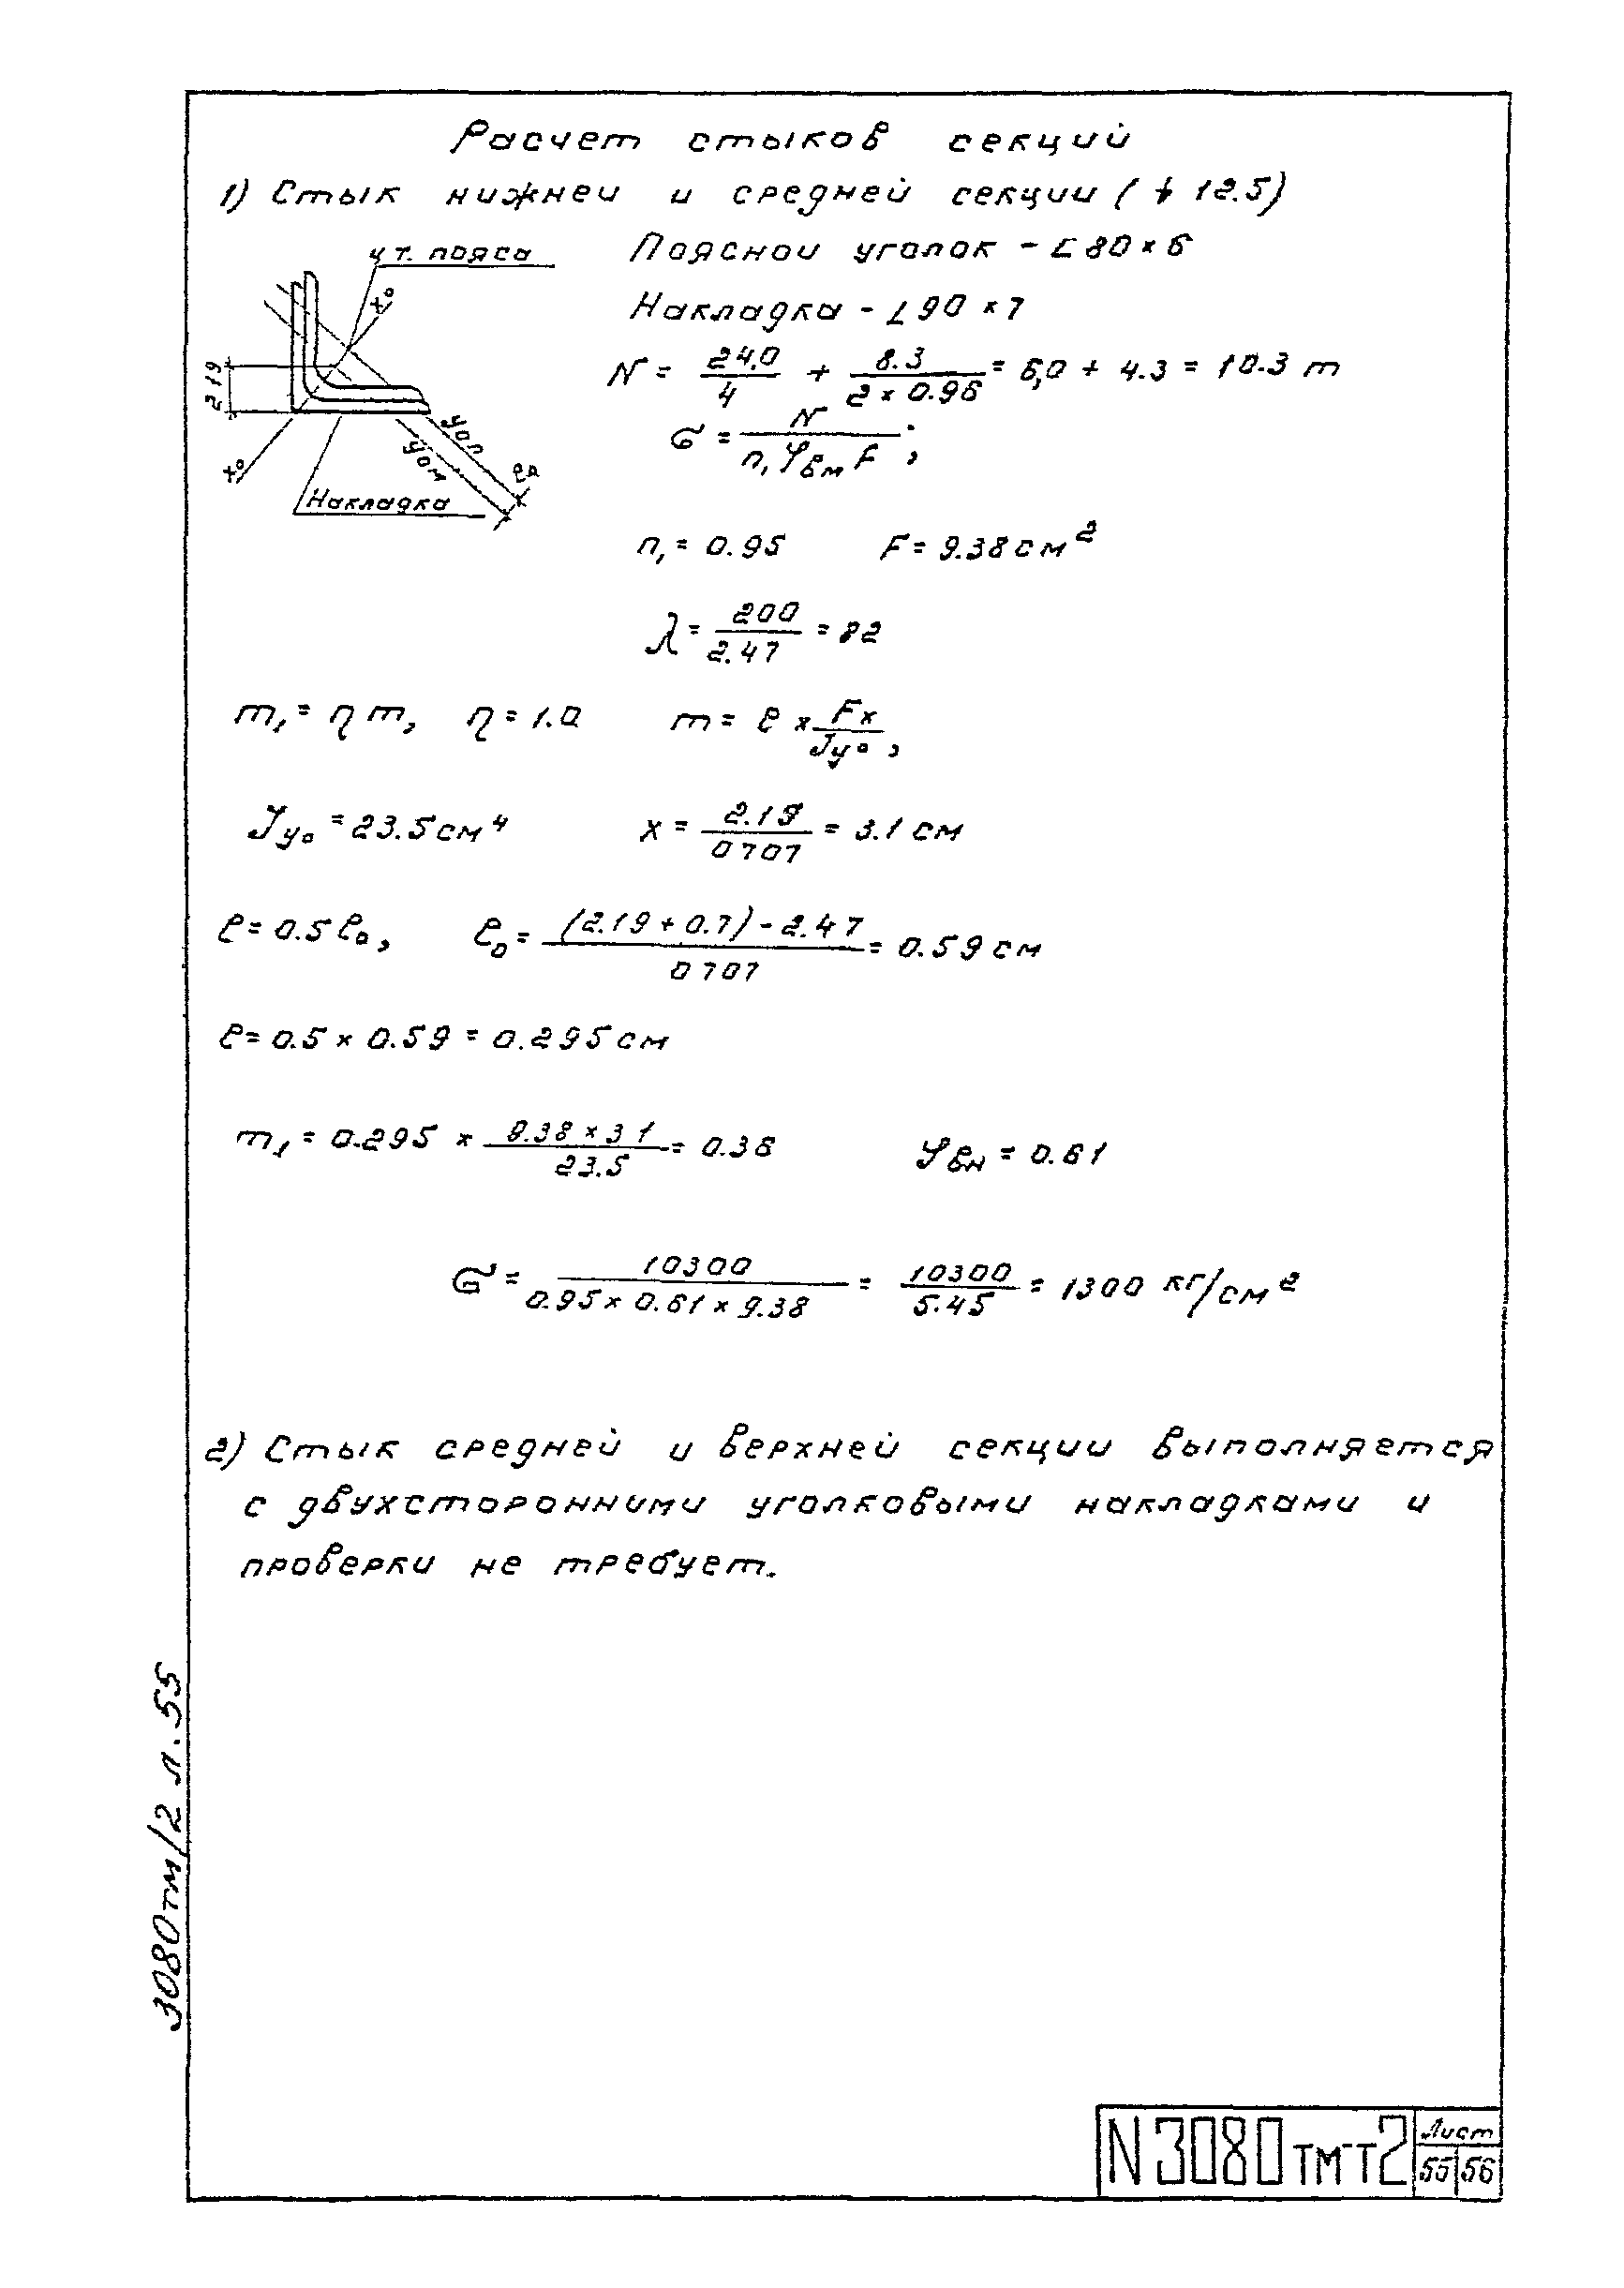 Расчет стыков секций
1) Стык нижней и средней секции (↓ 12.5)
ц т. пояса
Поясной уголок - L 80 × 6
Накладка - L 90 × 7
x°
2 19
N = 24,0/4 + 8.3/(2 × 0.96) = 6,0 + 4.3 = 10.3 т
σ = N/(n₁ φвм F);
Уоп
Уом
x°
Накладка
n₁ = 0.95 F = 9.38 см²
λ = 200/2.47 = 82
m₁ = η m, η = 1.0 m = e × Fx/Jy°,
Jy° = 23.5 см⁴ x = 2.19/0 707 = 3.1 см
e = 0.5 e₀, e₀ = ((2.19 + 0.7) - 2.47)/0 707 = 0.59 см
e = 0.5 × 0.59 = 0.295 см
m₁ = 0.295 × (9.38 × 3 1)/23.5 = 0.36 φвн = 0.61
σ = 10300/(0.95 × 0.61 × 9.38) = 10300/5.45 = 1300 кг/см²
2) Стык средней и верхней секции выполняется
с двухсторонними уголковыми накладками и
проверки не требует.
3080тм/2 л. 55
N 3080тм-т2
Лист
55 56